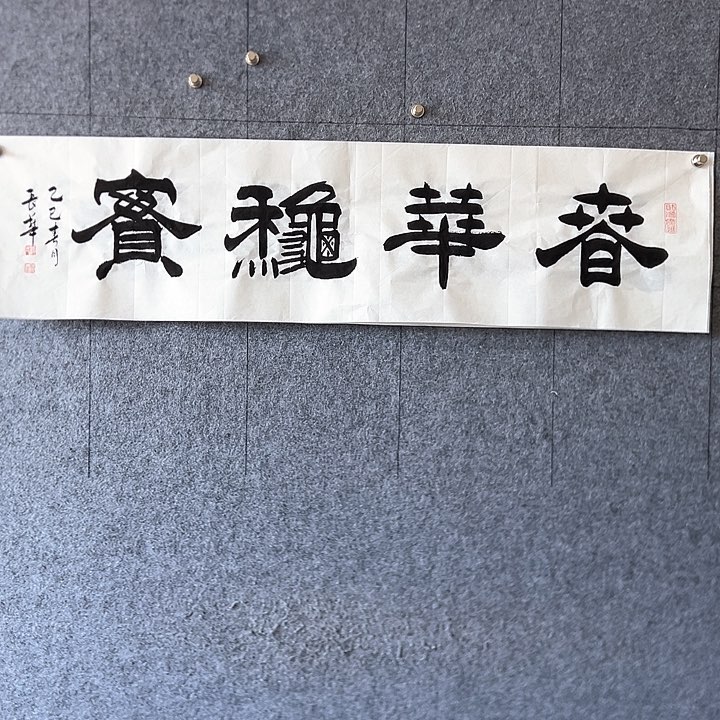 春華龝實
乙巳春月
長華